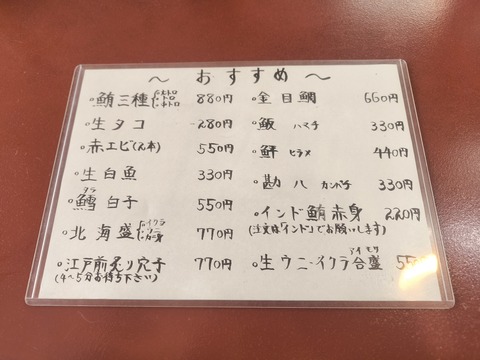 ～ おすすめ ～
・鮪三種 大トロ 中トロ 880円
・生タコ 280円
・赤エビ(2本) 550円
・生白魚 330円
・鱈白子 タラ 550円
・北海盛 イクラ カニ 770円
・江戸前炙り穴子 770円
(4～5分お待ち下さい)
・金目鯛 660円
・魬 ハマチ 330円
・鮃 ヒラメ 440円
・勘八 カンパチ 330円
・インド鮪赤身 220円
(注文は「インド」でお願いします)
・生ウニ・イクラ合盛 アイモリ